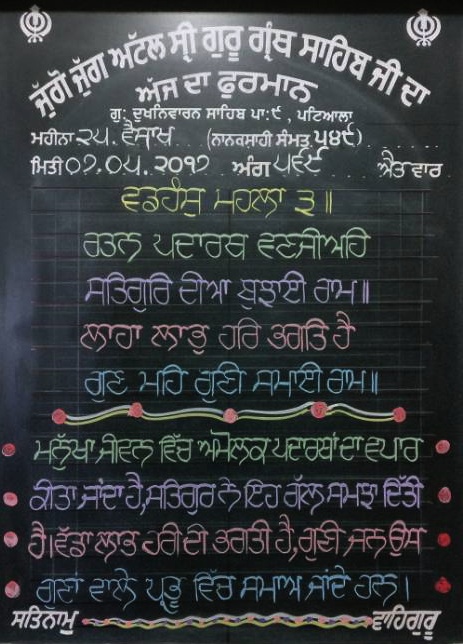 ਜੁੱਗੋ ਜੁੱਗ ਅਟੱਲ ਸ੍ਰੀ ਗੁਰੂ ਗ੍ਰੰਥ ਸਾਹਿਬ ਜੀ ਦਾ
ਅੱਜ ਦਾ ਫੁਰਮਾਨ
ਗੁ: ਦੁਖਨਿਵਾਰਨ ਸਾਹਿਬ ਪਾ:੯ , ਪਟਿਆਲਾ
ਮਹੀਨਾ ੨੫ ਵੈਸਾਖ (ਨਾਨਕਸ਼ਾਹੀ ਸੰਮਤ ੫੪੯)
ਮਿਤੀ ੦੭.੦੫.੨੦੧੭ ਅੰਗ ੫੬੯ ਐਤ ਵਾਰ
ਵਡਹੰਸੁ ਮਹਲਾ ੩॥
ਰਤਨ ਪਦਾਰਥ ਵਣਜੀਅਹਿ
ਸਤਿਗੁਰਿ ਦੀਆ ਬੁਝਾਈ ਰਾਮ॥
ਲਾਹਾ ਲਾਭੁ ਹਰਿ ਭਗਤਿ ਹੈ
ਗੁਣ ਮਹਿ ਗੁਣੀ ਸਮਾਈ ਰਾਮ॥
ਮਨੁੱਖਾ ਜੀਵਨ ਵਿੱਚ ਅਮੋਲਕ ਪਦਾਰਥਾਂ ਦਾ ਵਪਾਰ
ਕੀਤਾ ਜਾਂਦਾ ਹੈ,ਸਤਿਗੁਰ ਨੇ ਇਹ ਗੱਲ ਸਮਝਾ ਦਿੱਤੀ
ਹੈ।ਵੱਡਾ ਲਾਭ ਹਰੀ ਦੀ ਭਗਤੀ ਹੈ,ਗੁਣੀ ਜਨ ਉਸ
ਗੁਣਾਂ ਵਾਲੇ ਪ੍ਰਭੂ ਵਿੱਚ ਸਮਾਅ ਜਾਂਦੇ ਹਨ।
ਸਤਿਨਾਮੁ ਵਾਹਿਗੁਰੂ